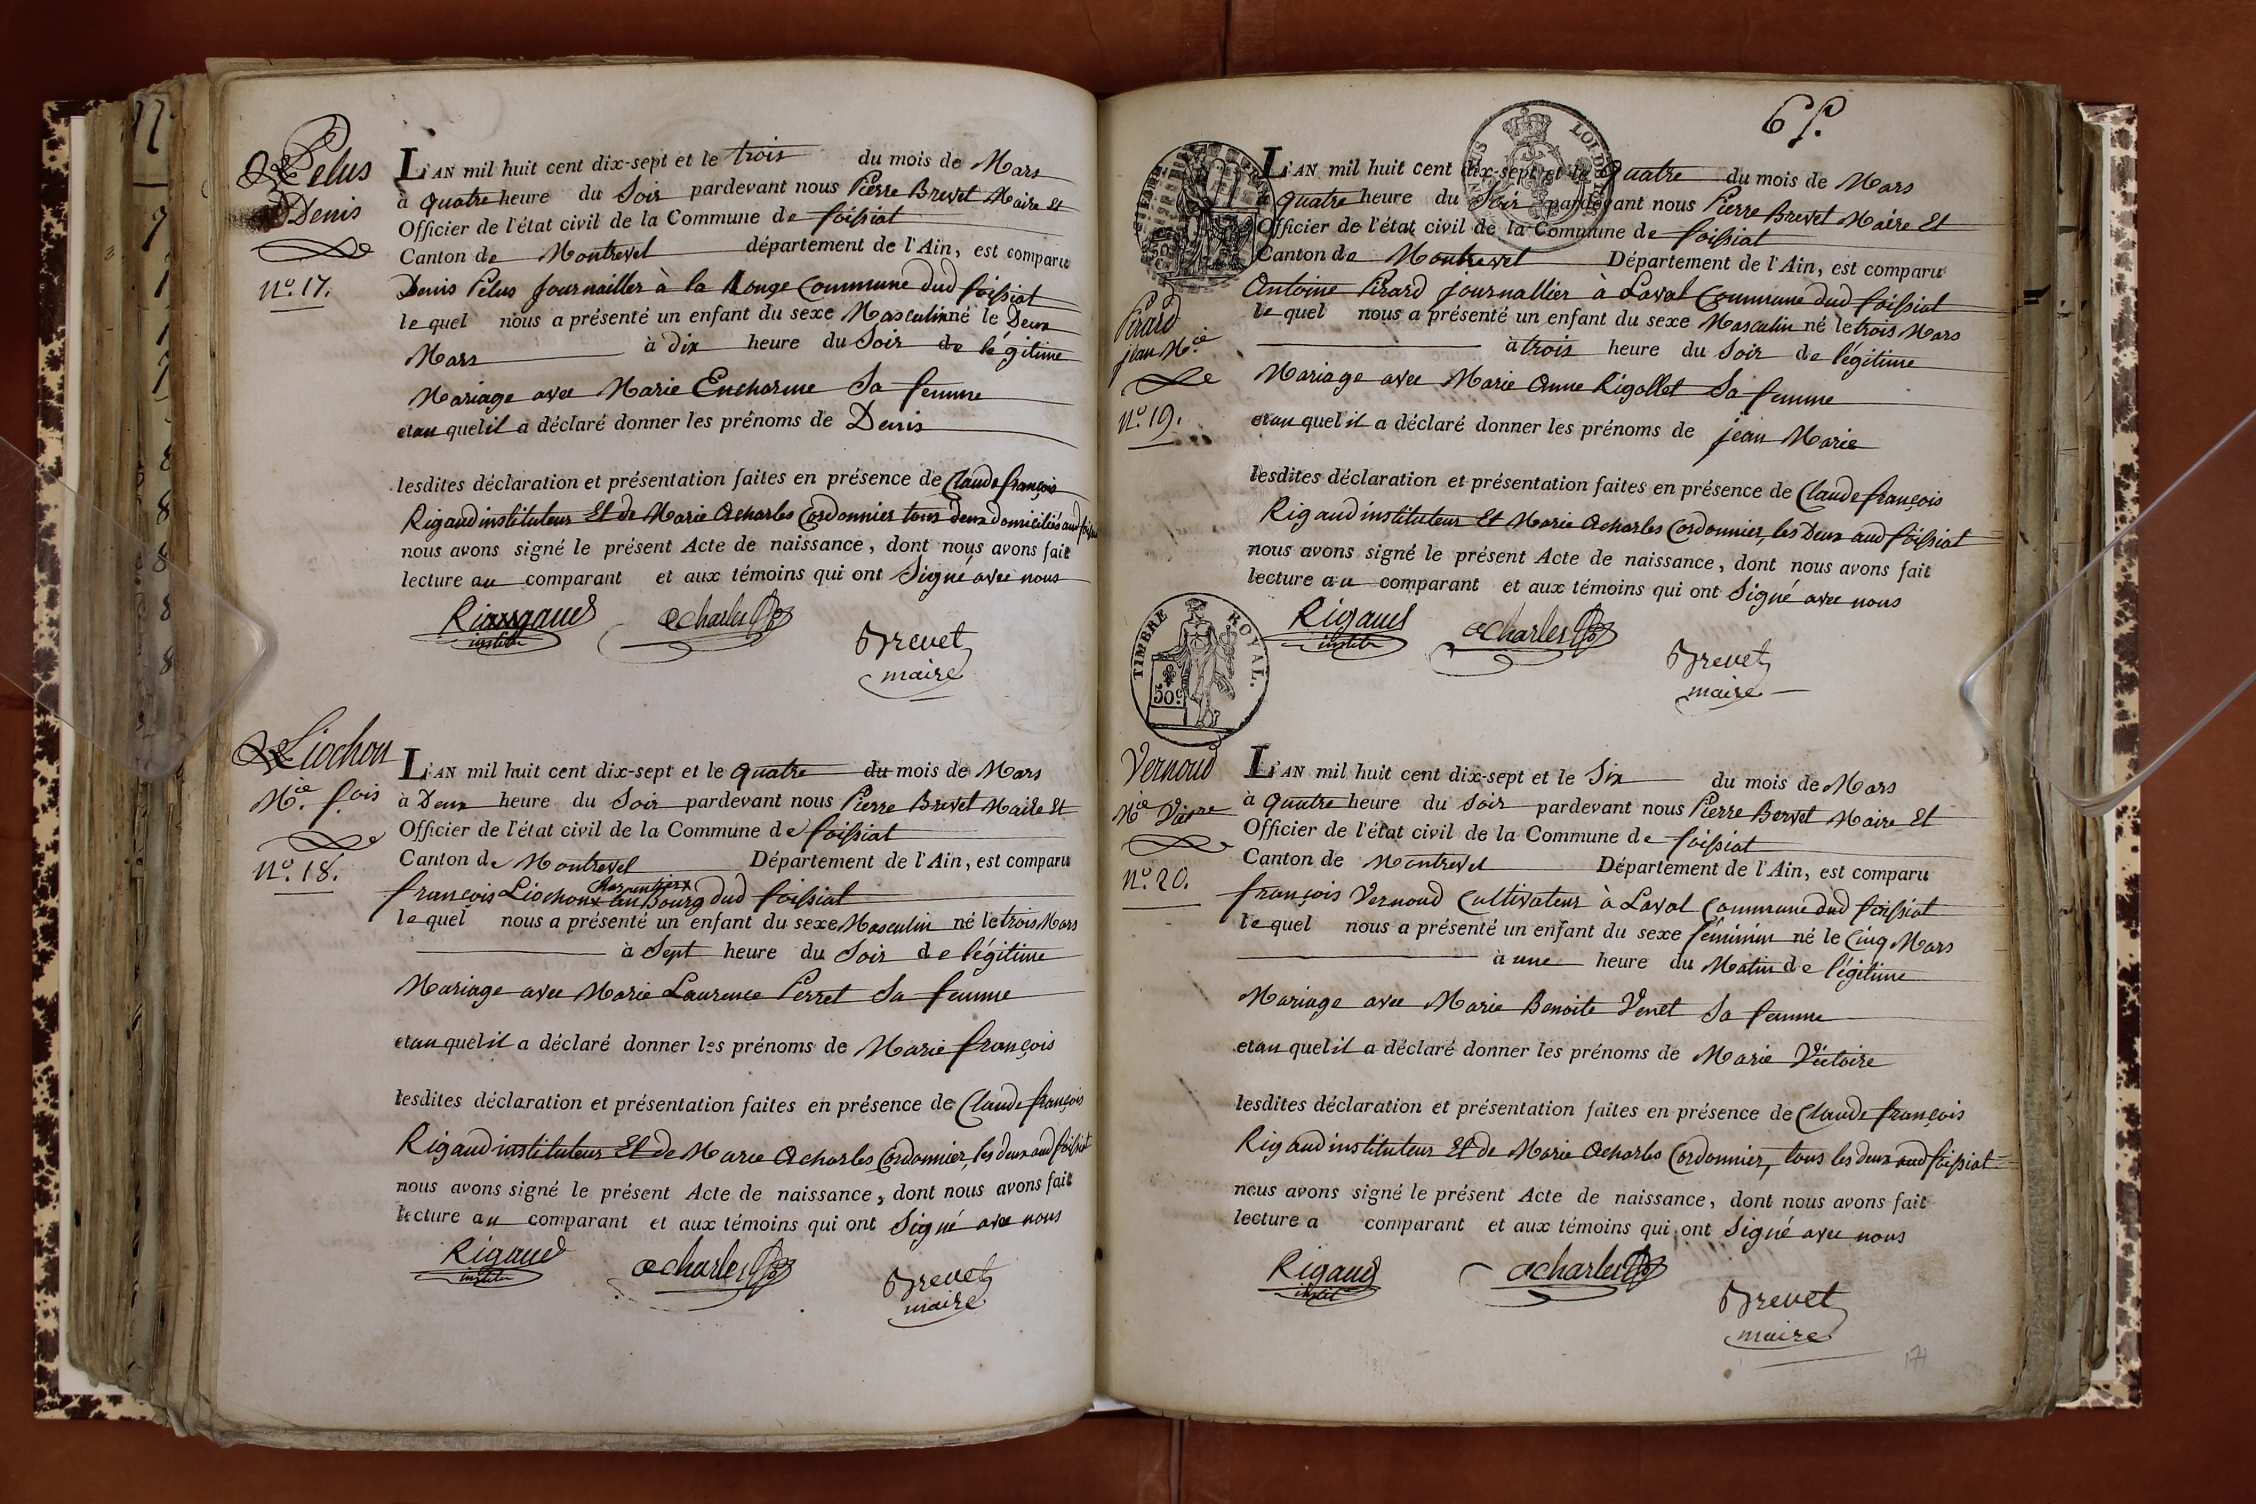 Pelus
Denis
N.o 17.
L'AN mil huit cent dix-sept et le trois du mois de Mars
à quatre heure du Soir pardevant nous Pierre Brevet Maire Et
Officier de l'état civil de la Commune de foissiat
Canton de Montrevel département de l'Ain, est comparu
Denis Pelus journailler à la Longe Commune dud foissiat
lequel nous a présenté un enfant du sexe Masculin né le Deux
Mars à dix heure du Soir de légitime
Mariage avec Marie Encharme Sa femme
et au quel il a déclaré donner les prénoms de Denis
lesdites déclaration et présentation faites en présence de Claude françois
Rigaud instituteur Et de Marie Acharles Cordonnier tous deux domiciliés aud foissiat
nous avons signé le présent Acte de naissance, dont nous avons fait
lecture au comparant et aux témoins qui ont Signé avec nous
Rigaud acharles
institr
Brevet
maire
Liochon
M.ie fois
N.o 18.
L'AN mil huit cent dix-sept et le quatre du mois de Mars
à Deux heure du Soir pardevant nous Pierre Brevet Maire Et
Officier de l'état civil de la Commune de foissiat
Canton de Montrevel Département de l'Ain, est comparu
Charpentier
françois Liochon x au Bourg dud foissiat
lequel nous a présenté un enfant du sexe Masculin né le trois Mars
à Sept heure du Soir de légitime
Mariage avec Marie Laurence Perret Sa femme
et au quel il a déclaré donner les prénoms de Marie françois
lesdites déclaration et présentation faites en présence de Claude françois
Rigaud instituteur Et de Marie Acharles Cordonnier, les deux aud foissiat
nous avons signé le présent Acte de naissance, dont nous avons fait
lecture au comparant et aux témoins qui ont Signé avec nous
Rigaud acharles
institr
Brevet
maire
LOI DE 1816
L'AN mil huit cent dix-sept et le quatre du mois de Mars
à quatre heure du Soir pardevant nous Pierre Brevet Maire Et
Officier de l'état civil de la Commune de foissiat
Canton de Montrevel Département de l'Ain, est comparu
Antoine Pirard journallier à Laval Commune dud foissiat
Pirard
jean M.ie
N.o 19.
lequel nous a présenté un enfant du sexe Masculin né le trois Mars
à trois heure du Soir de légitime
Mariage avec Marie Anne Rigollet Sa femme
et au quel il a déclaré donner les prénoms de jean Marie
lesdites déclaration et présentation faites en présence de Claude françois
Rigaud instituteur Et Marie Acharles Cordonnier, les Deux aud foissiat
nous avons signé le présent Acte de naissance, dont nous avons fait
lecture au comparant et aux témoins qui ont Signé avec nous
TIMBRE ROYAL.
50.c
Rigaud acharles
institr
Brevet
maire
Vernoud
M.ie Vic.re
N.o 20.
L'AN mil huit cent dix-sept et le Six du mois de Mars
à quatre heure du Soir pardevant nous Pierre Bervet Maire Et
Officier de l'état civil de la Commune de foissiat
Canton de Montrevel Département de l'Ain, est comparu
françois Vernoud Cultivateur à Laval Commune dud foissiat
lequel nous a présenté un enfant du sexe féminin né le Cinq Mars
à une heure du Matin de légitime
Mariage avec Marie Benoite Venet Sa femme
et au quel il a déclaré donner les prénoms de Marie Victoire
lesdites déclaration et présentation faites en présence de Claude françois
Rigaud instituteur Et de Marie Acharles Cordonnier, tous les deux aud foissiat
nous avons signé le présent Acte de naissance, dont nous avons fait
lecture a comparant et aux témoins qui ont Signé avec nous
Rigaud acharles
instit
Brevet
maire